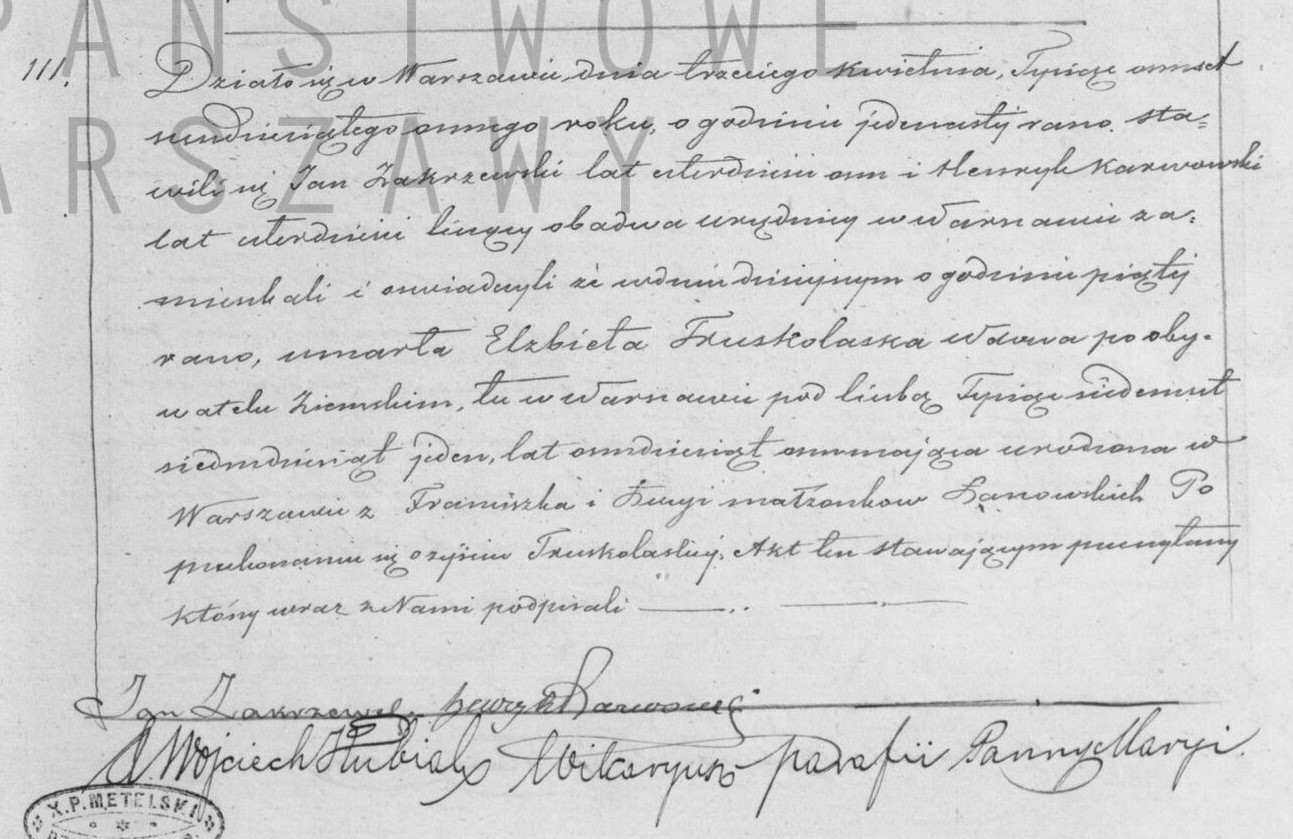 PAŃSTWOWE
WARSZAWY
111.
Działo się w Warszawie dnia trzeciego Kwietnia, Tysiąc ośmset
siedmdziesiątego ósmego roku, o godzinie jedenastej rano. Sta=
wili się Jan Zakrzewski lat czterdzieści ośm i Henryk Karwowski
lat czterdzieści liczący obadwa urzędnicy w Warszawie za=
mieszkali i oświadczyli że w dniu dzisiejszym o godzinie piątej
rano, umarła Elzbieta Truskolaska wdowa po oby-
watelu Ziemskim, tu w Warszawie pod liczbą Tysiąc siedemset
siedmdziesiąt jeden, lat ośmdziesiąt ośm mająca urodzona w
Warszawie z Franciszka i małżonków Po
przekonaniu się o zejściu Truskolaskiej. Akt ten stawającym przeczytany
który wraz z Nami podpisali
Jan Zakrzewski Henryk Karwowski
X. Wojciech Wikaryusz parafii Panny Maryi.
X. P. METELSKI